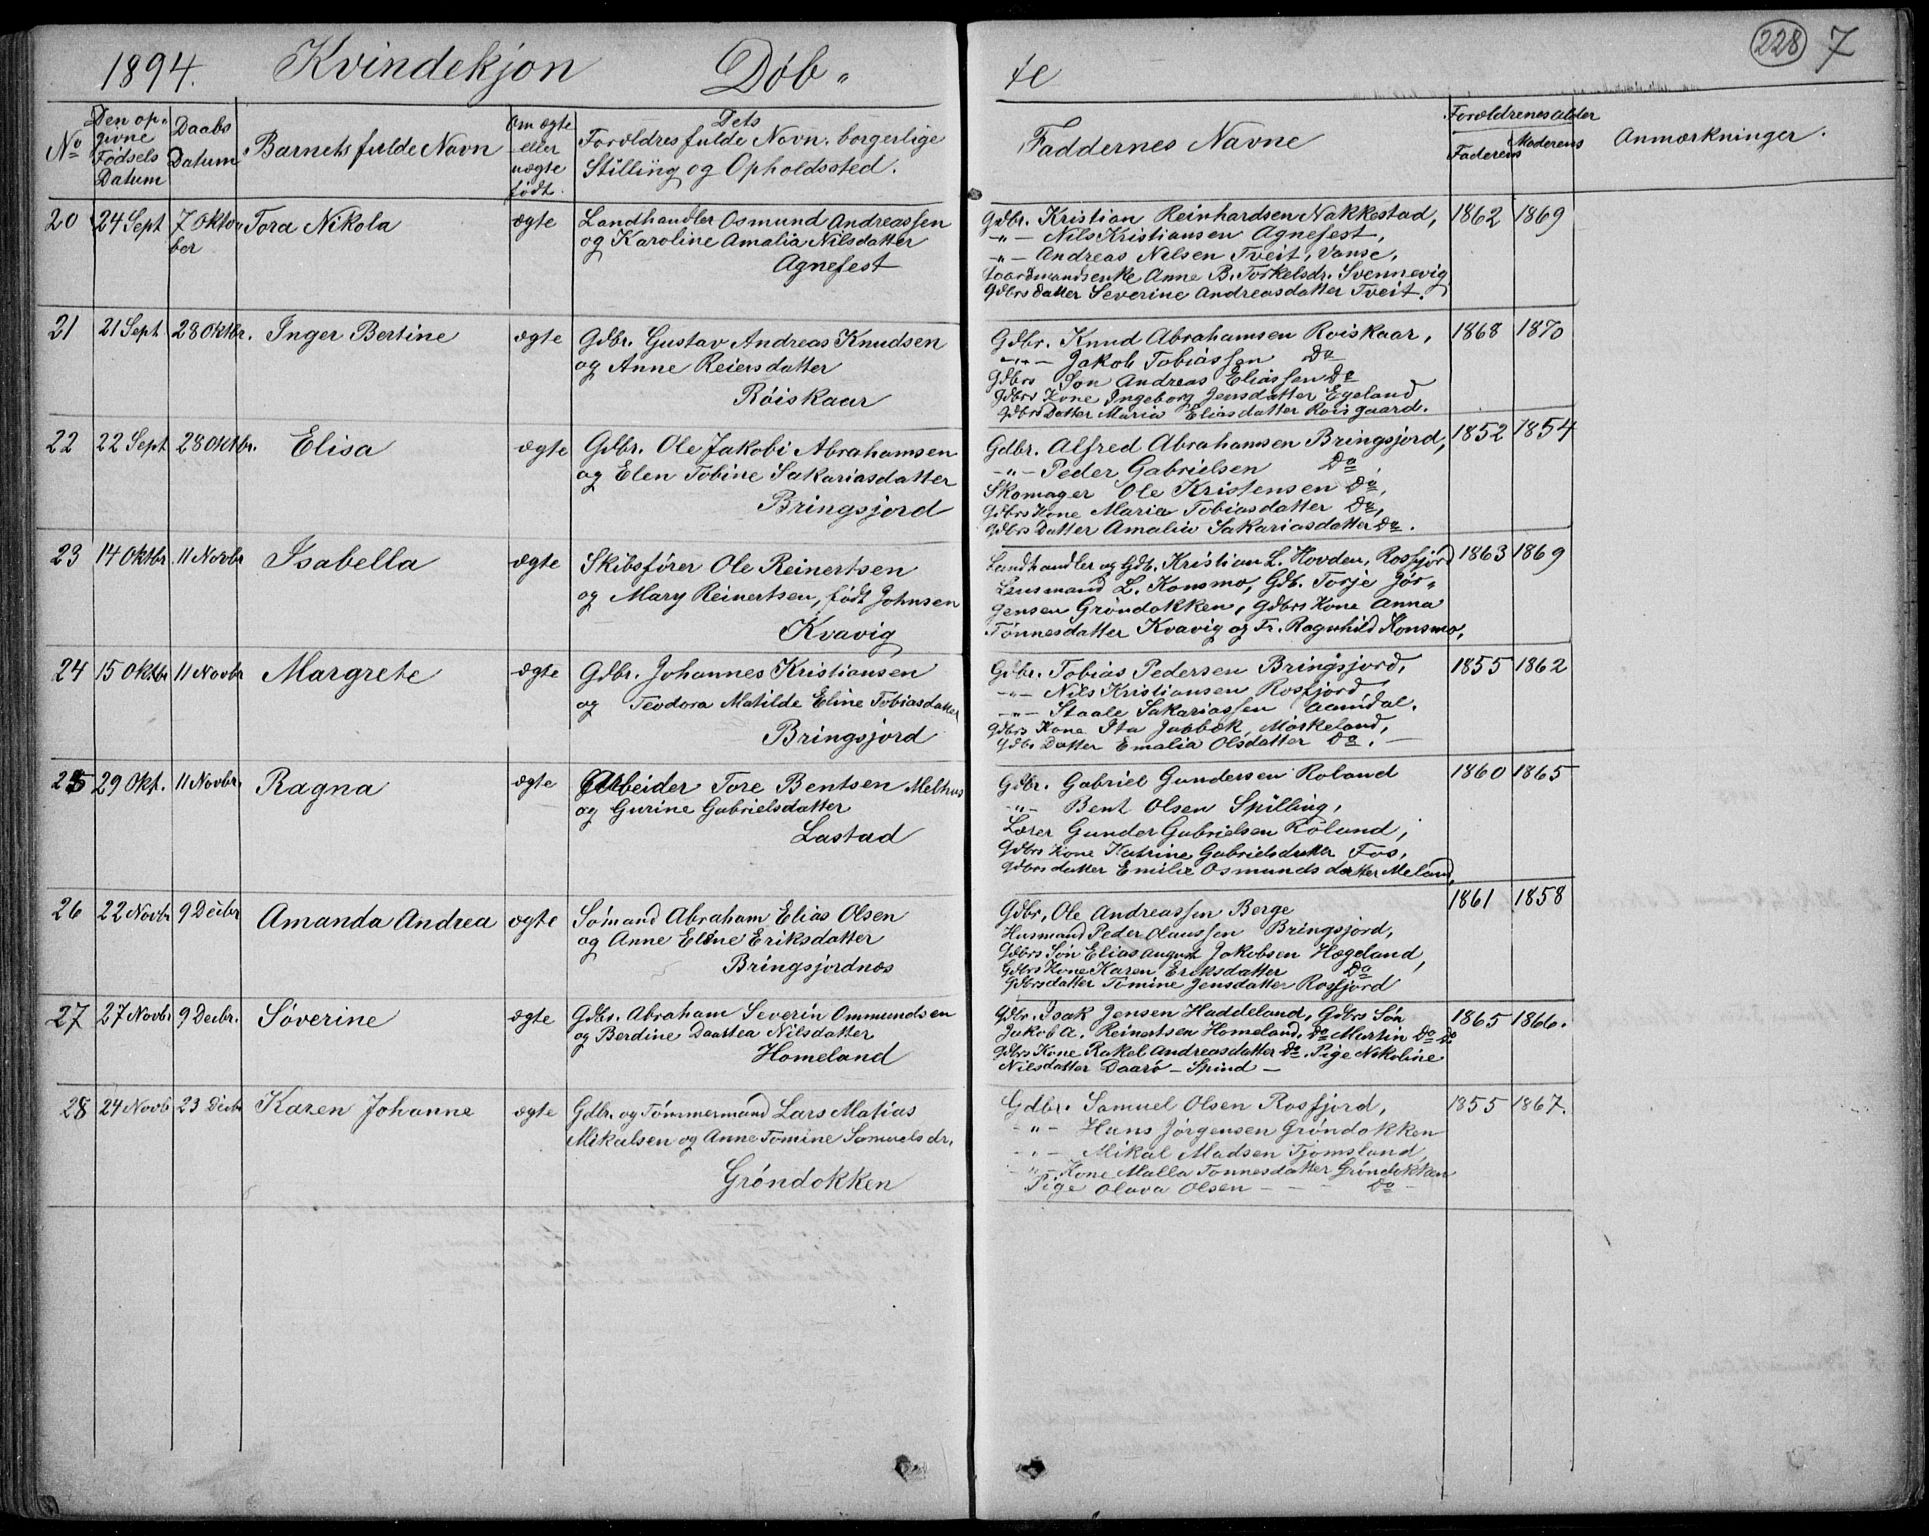 1894. Kvindekjøn Døb„ te 228 7
No Den op„givne Fødsels Datum Daabs Datum Barnets fulde Navn Om ægte eller uægte født. Dets Forældres fulde Navn, borgerlige Stilling og Opholdssted. Faddernes Navne Forældrenes alder Faderens Moderens Anmærkninger.
20 24 Sept 7 Okto„ber Tora Nikola ægte Landhandler Osmund Andreassen
og Karoline Amalia Nilsdatter
Agnefest
Gdbr. Kristian Reinhardsen Nakkestad, 1862 1869
-„- Nils Kristiansen Agnefest,
-„- Andreas Nilsen Tveit, Vanse,
Gaardmandsenke Anne B. Torkelsdr. Svennevig
Gdbrs datter Severine Andreasdatter Tveit.
21 21 Sept 28 Oktbr. Inger Bertine ægte Gdbr. Gustav Andreas Knudsen
og Anne Reiersdatter
Røiskaar
Gdbr. Knud Abrahamsen Roiskaar, 1868 1870
-„- Jakob Tobiassen Do
Gdbrs Søn Andreas Eliassen Do
Gdbrs Kone Ingeborg Jensdatter Egeland
Gdbrs Datter Maria Eliasdatter Roisgaard.
22 22 Sept 28 Oktbr. Elisa ægte Gdbr. Ole Jakobi Abrahamsen
og Elen Tobine Sakariasdatter
Bringsjord
Gdbr. Alfred Abrahamsen Bringsjord, 1852 1854
-„- Peder Gabrielsen Do
Skomager Ole Kristensen Do,
Gdbrs Kone Maria Tobiasdatter Do,
Gdbrs Datter Amalia Sakariasdatter Do.
23 14 Oktbr. 11 Novbr Isabella ægte Skibsfører Ole Reinertsen
og Mary Reinertsen, født Johnsen
Kvavig
Landhandler og Gdb. Kristian L. Hovden, Rosfjord 1863 1869
Lensmand L. Konsmo, Gdb. Torje Jør„
gensen Grøndokken, Gdbrs Kone Anna
Tønnesdatter Kvavig og Fr. Ragnhild Konsmo,
24 15 Oktbr 11 Novbr Margrete ægte Gdbr. Johannes Kristiansen
og Teodora Matilde Eline Tobiasdatter
Bringsjord
Gdbr. Tobias Pedersen Bringsjord, 1855 1862
-„- Nils Kristiansen Rosfjord
-„- Staale Sakariassen Aamdal.
Gdbrs Kone Ita Mørkeland,
Gdbr Datter Emalia Olsdatter Do. -
25 29 Okt. 11 Novbr. Ragna ægte Arbeider Tore Bentsen Melhus
og Gurine Gabrielsdatter
Lastad
Gdbr. Gabriel Gundersen Roland 1860 1865
-„- Bent Olsen Spilling,
Lærer Gunder Gabrielsen Røland,
Gdbrs Kone Katrine Gabrielsdatter Fos,
Gdbrs datter Emilie Osmundsdatter Meland,
26 22 Novbr 9 Decbr Amanda Andrea ægte Sømand Abraham Elias Olsen
og Anne Eline Eriksdatter
Bringsjordnes
Gdbr, Ole Andreassen Berge 1861 1858
Husmand Peder Olaussen Bringsjord,
Gdbrs Søn Elias August Jakobsen Hægeland,
Gdbrs Kone Karen Eriksdatter Do
Gdbrsdatter Tomine Jensdatter Rosfjord
27 27 Novbr 9 Decbr. Søverine ægte Gdbr. Abraham Severin Ommundsen
og Berdine Daattea Nilsdatter
Homeland
Gdbr. Isak Jensen Haddeland, Gdbrs Søn 1865 1866.
Jakob A. Reinertsen Homeland, Do Martin Do Do
Gdbrs Kone Rakel Andreasdatter Do. Pige Nikoline
Nilsdatter Daarø - Spind -
28 24 Novb 23 Decbr Karen Johanne ægte Gdbr. og Tømmermand Lars Matias
Mikalsen og Anne Tomine Samuelsdr.
Grøndokken
Gdbr. Samuel Olsen Rosfjord, 1855 1867.
-„- Hans Jørgensen Grøndokken
-„- Mikal Madsen Tjomsland,
-„- Kone Malla Tønnesdatter Grøndokken
Pige Olava Olsen - - - Do -